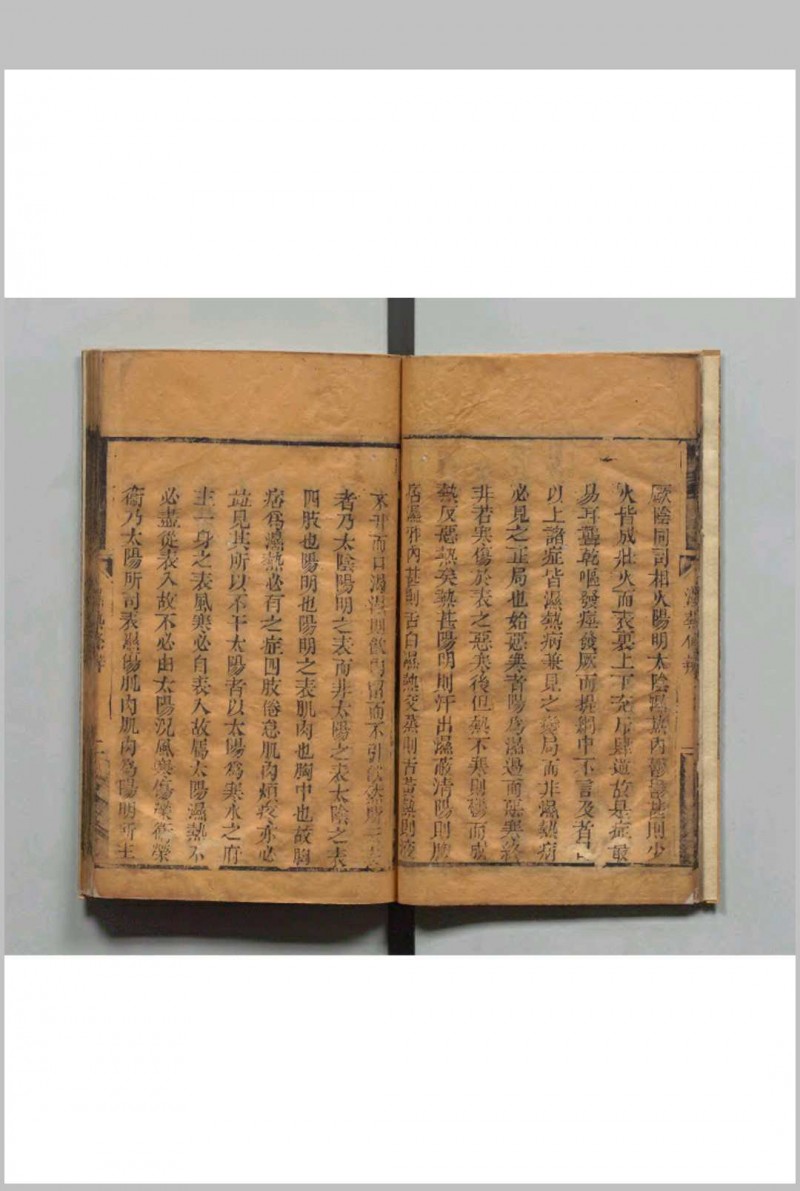 厥陰同司相火陽明太陰濕熱內鬱鬱甚則少
火皆成壯火而表裏上下充斥肆逆故是症最
易耳聾乾嘔發痙發厥而提綱中不言及者
以上諸症皆濕熱病兼見之變局而非濕熱病
必見之正局也始惡寒者陽爲濕遏而惡寒終
非若寒傷於表之惡寒後但熱不寒則鬱而成
熱反惡熱矣熱甚陽明則汗出濕蔽清陽則胸
痞濕邪內甚則舌白濕熱交蒸則舌黃熱則液
不升而口渴濕則飲內留而不引飲然所云表
者乃太陰陽明之表而非太陽之表太陰之表
四肢也陽明也陽明之表肌肉也胸中也故胸
痞爲濕熱必有之症四肢倦怠肌肉煩疼亦必
並見其所以不干太陽者以太陽爲寒水之府
主一身之表風寒必自表入故屬太陽濕熱不
必盡從表入故不必由太陽況風寒傷榮衞榮
衞乃太陽所司表濕傷肌肉肌肉爲陽明所主